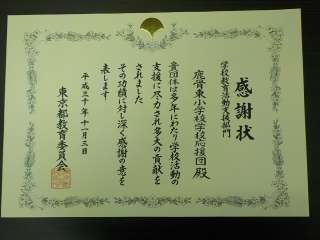 感謝状
学校教育活動支援部門
鹿骨東小学校学校応援団 殿
貴団体は多年にわたり学校活動の
支援に尽力され多大の貢献を
されました
その功績に対し深く感謝の意を
表します
平成三十年十一月三日
東京都教育委員会